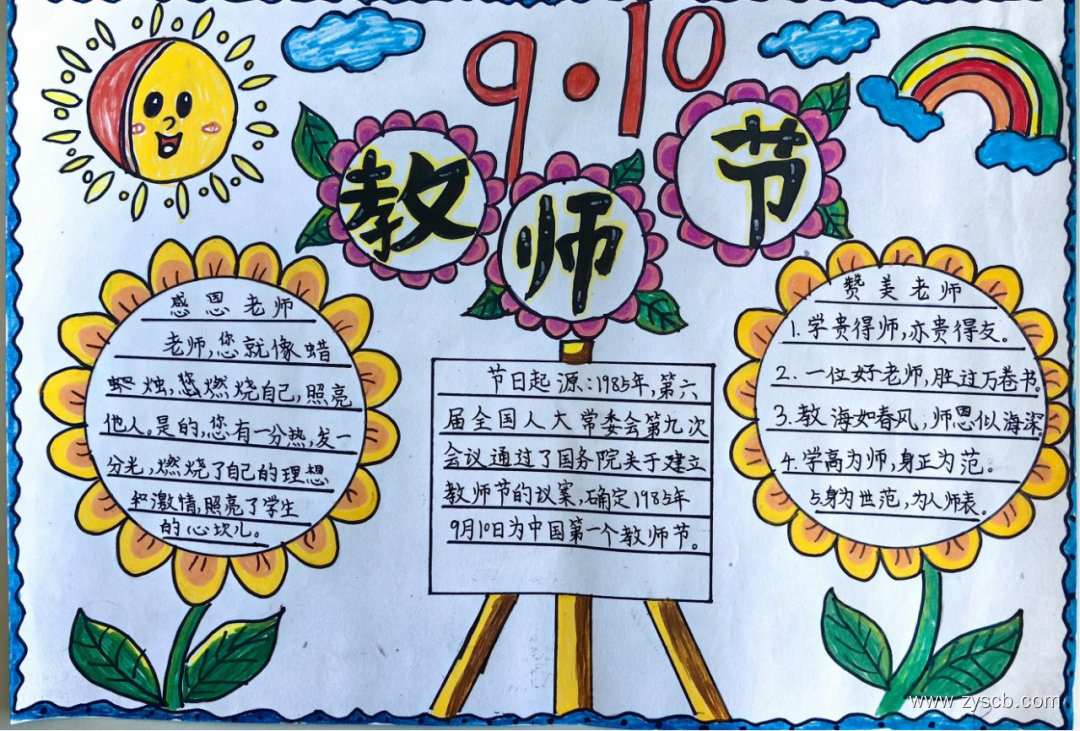 9.10
教师节
感恩老师
老师,您就像蜡
烛,您燃烧自己,照亮
他人。是的,您有一分热,发一
分光,燃烧了自己的理想
和激情,照亮了学生
的心坎儿。
节日起源:1985年,第六
届全国人大常委会第九次
会议通过了国务院关于建立
教师节的议案,确定1985年
9月10日为中国第一个教师节。
赞美老师
1.学贵得师,亦贵得友。
2.一位好老师,胜过万卷书。
3.教海如春风,师恩似海深。
4.学高为师,身正为范。
与身为世范,为人师表。
www.zyscb.com